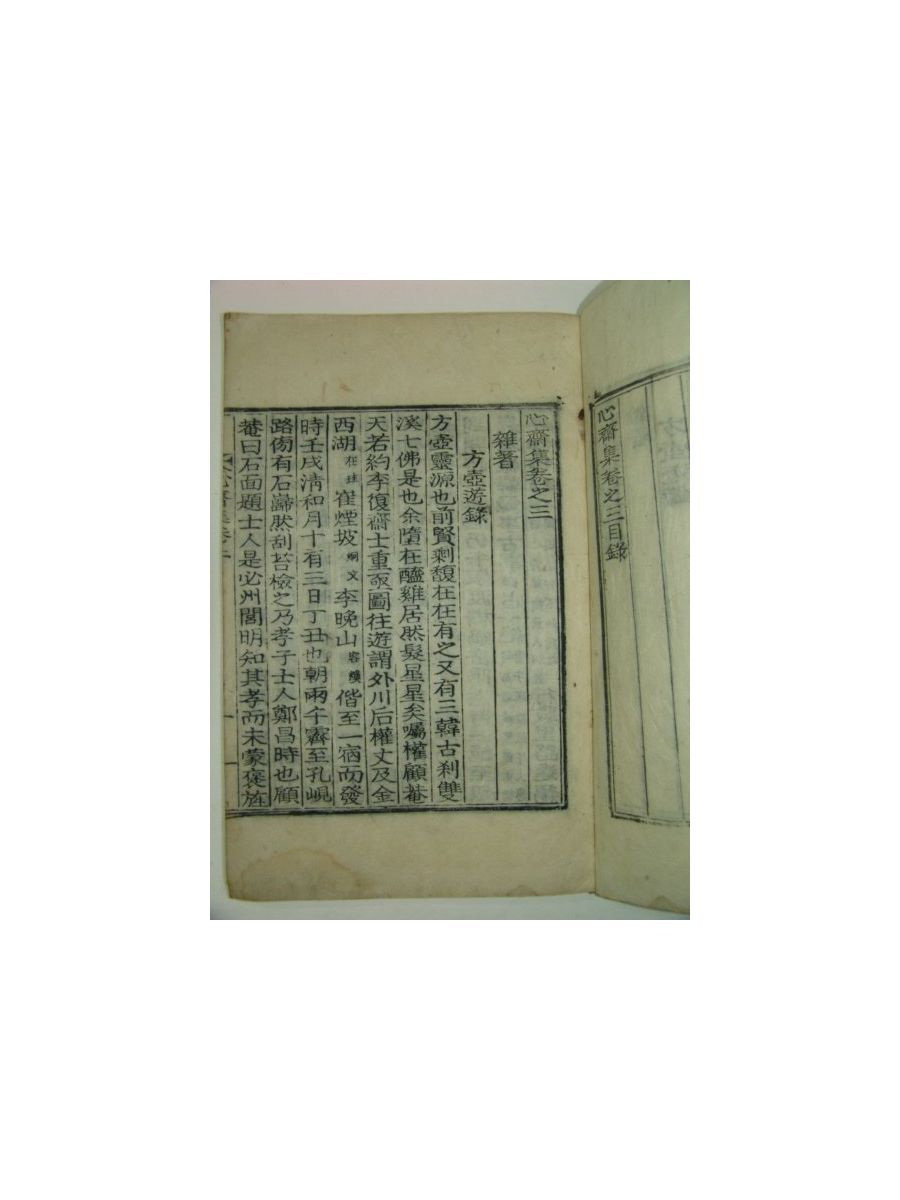 心齋集卷之三目錄
心齋集卷之三
雜著
方壺遊錄
方壺靈源也前賢剩馥在在有之又有三韓古刹雙
溪七佛是也余墮在醯雞居然髮星星矣囑權顧菴
天若約李復齋士重亟圖往遊謂外川后權丈及金
西湖 在珪 崔煙坡 炯文 李晚山 容 偕至一宿而發
時壬戌淸和月十有三日丁丑也朝雨午霽至孔峴
路傍有石巋然刮苔檢之乃孝子士人鄭昌時也顧
菴曰石面題士人是必州閭明知其孝而未蒙褒旌